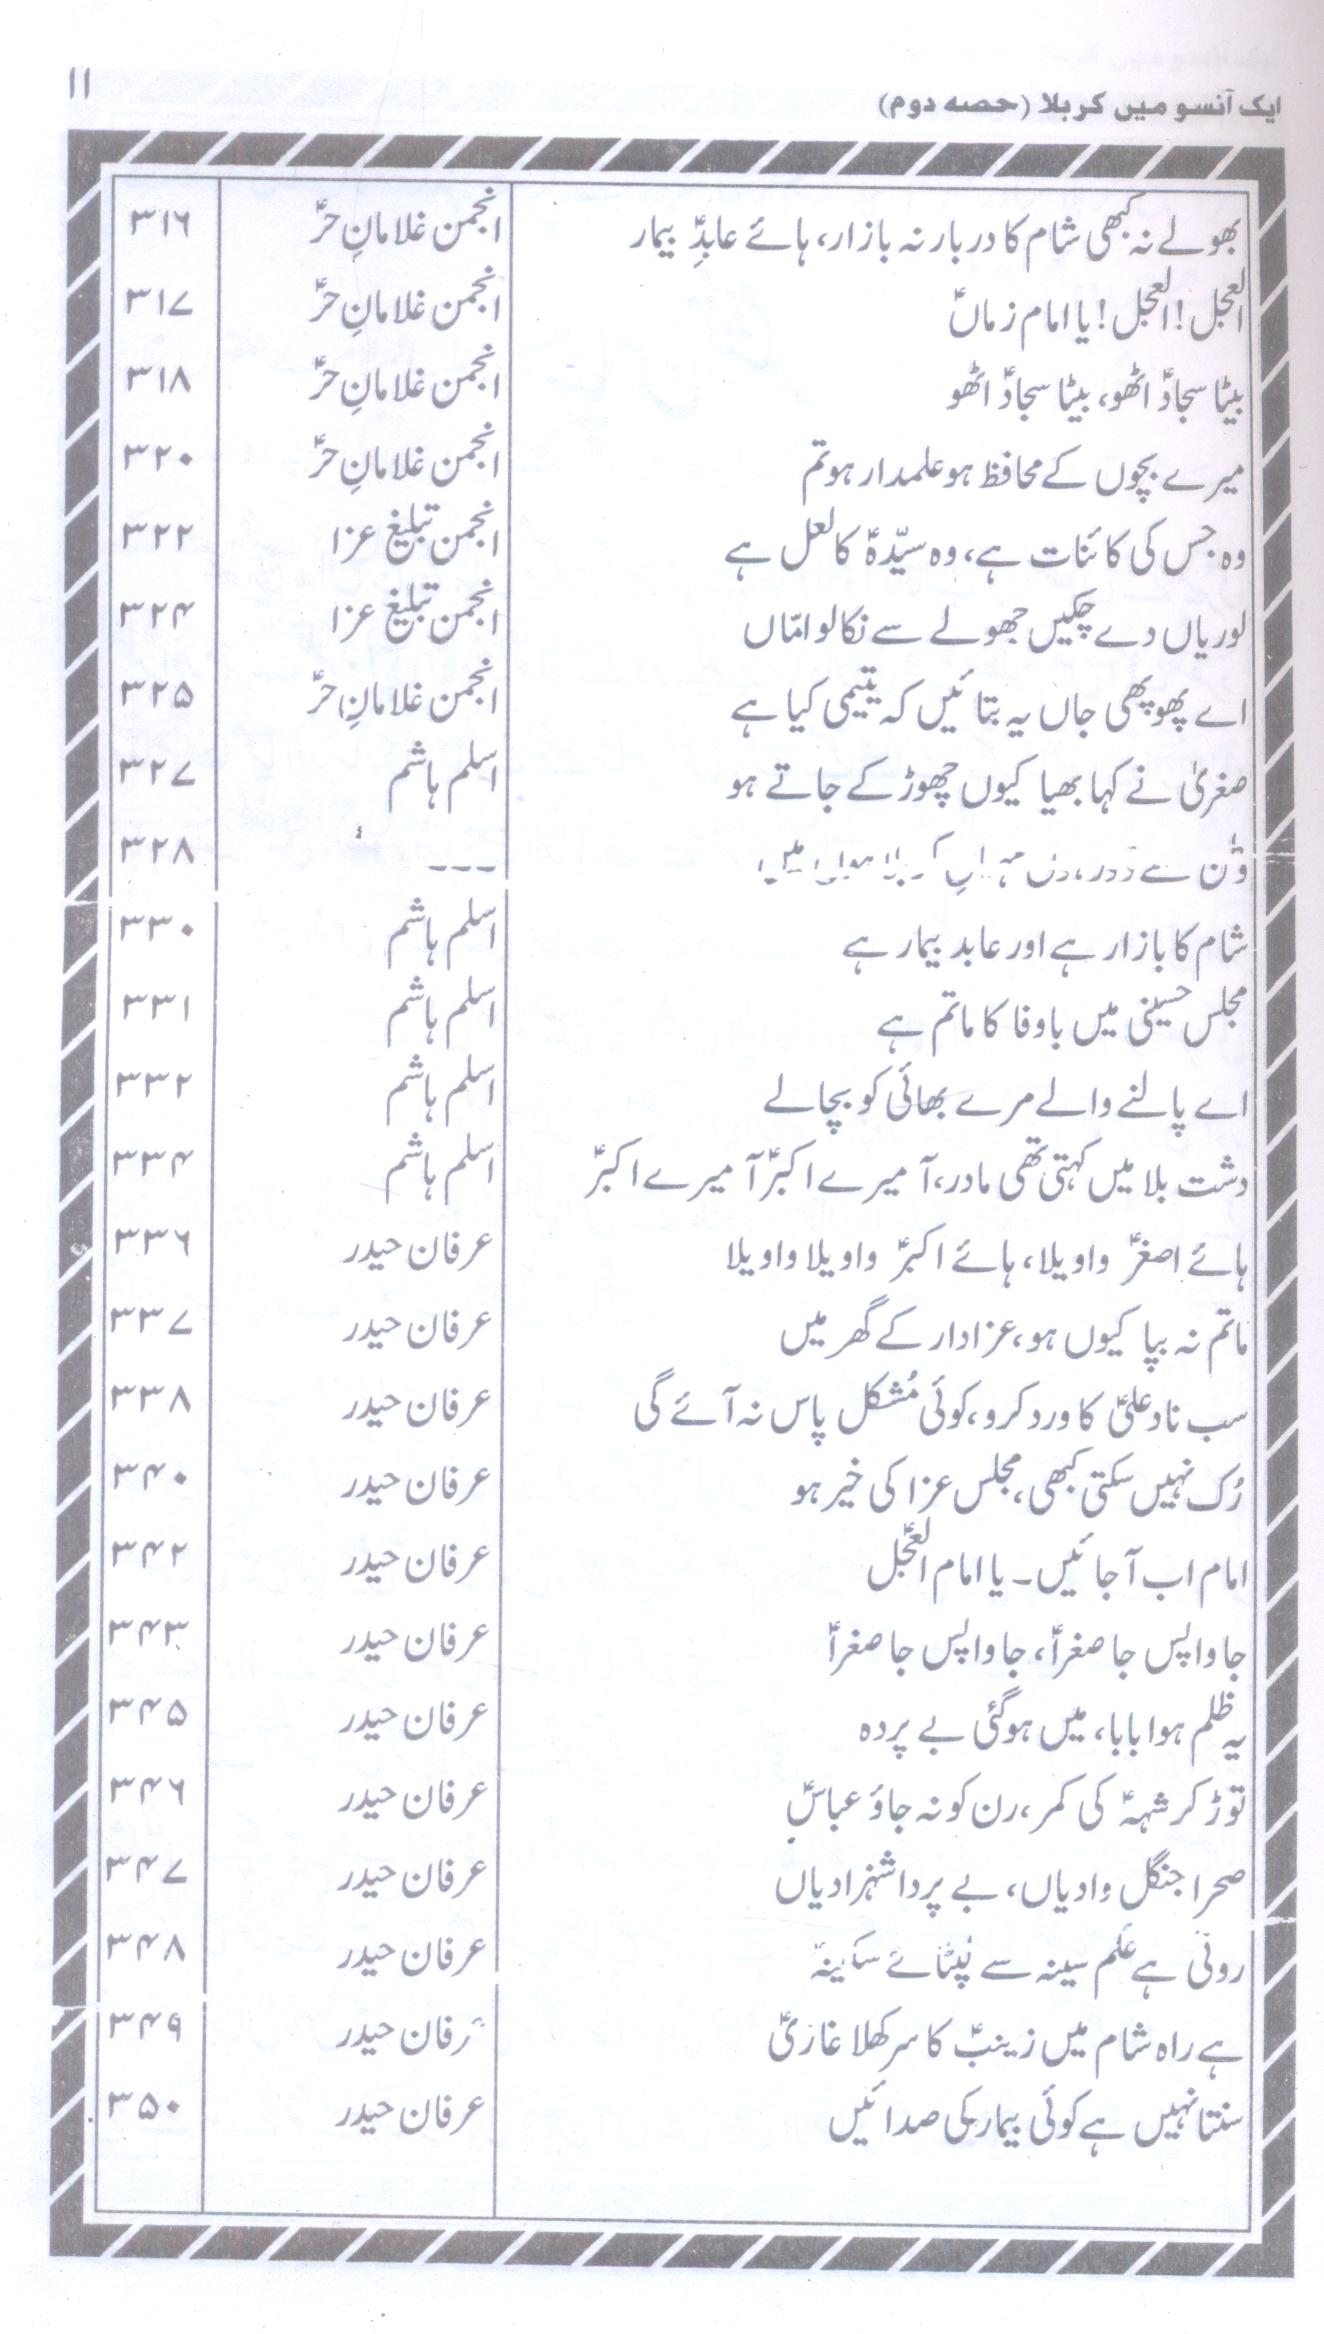 ایک آنسو میں کربلا (حصہ دوم) ۱۱
بھولے نہ کبھی شام کا دربار نہ بازار، ہائے عابدِؑ بیمار انجمن غلامانِ حرؑ ۳۱۶
العجل! العجل! یا امام زماںؑ انجمن غلامانِ حرؑ ۳۱۷
بیٹا سجادؑ اٹھو، بیٹا سجادؑ اٹھو انجمن غلامانِ حرؑ ۳۱۸
میرے بچوں کے محافظ ہو علمدار ہو تم انجمن غلامانِ حرؑ ۳۲۰
وہ جس کی کائنات ہے، وہ سیّدہؑ کا لعل ہے انجمن تبلیغ عزا ۳۲۲
لوریاں دے چکیں جھولے سے نکالو امّاں انجمن تبلیغ عزا ۳۲۴
اے پھوپھی جاں یہ بتائیں کہ یتیمی کیا ہے انجمن غلامانِ حرؑ ۳۲۵
صغریٰ نے کہا بھیا کیوں چھوڑ کے جاتے ہو اسلم ہاشم ۳۲۷
سے --- ۳۲۸
شام کا بازار ہے اور عابد بیمار ہے اسلم ہاشم ۳۳۰
مجلس حسینی میں باوفا کا ماتم ہے اسلم ہاشم ۳۳۱
اے پالنے والے مرے بھائی کو بچالے اسلم ہاشم ۳۳۲
دشت بلا میں کہتی تھی مادر، آ میرے اکبرؑ آ میرے اکبرؑ اسلم ہاشم ۳۳۴
ہائے اصغرؑ واویلا، ہائے اکبرؑ واویلا واویلا عرفان حیدر ۳۳۶
ماتم نہ بپا کیوں ہو، عزادار کے گھر میں عرفان حیدر ۳۳۷
سب ناد علیؑ کا ورد کرو، کوئی مُشکل پاس نہ آئے گی عرفان حیدر ۳۳۸
رُک نہیں سکتی کبھی، مجلس عزا کی خیر ہو عرفان حیدر ۳۴۰
امام اب آجائیں ۔ یا امام العجلؑ عرفان حیدر ۳۴۲
جا واپس جا صغراؑ، جا واپس جا صغراؑ عرفان حیدر ۳۴۳
یہ ظلم ہوا بابا، میں ہوگئی بے پردہ عرفان حیدر ۳۴۵
توڑ کر شہہؑ کی کمر، رن کو نہ جاؤ عباسؑ عرفان حیدر ۳۴۶
صحرا جنگل وادیاں، بے پردا شہزادیاں عرفان حیدر ۳۴۷
روتی ہے عَلم سینہ سے لپٹائے سکینہؑ عرفان حیدر ۳۴۸
ہے راہ شام میں زینبؑ کا سر کھلا غازیؑ عرفان حیدر ۳۴۹
سنتا نہیں ہے کوئی بیمار کی صدائیں عرفان حیدر ۳۵۰